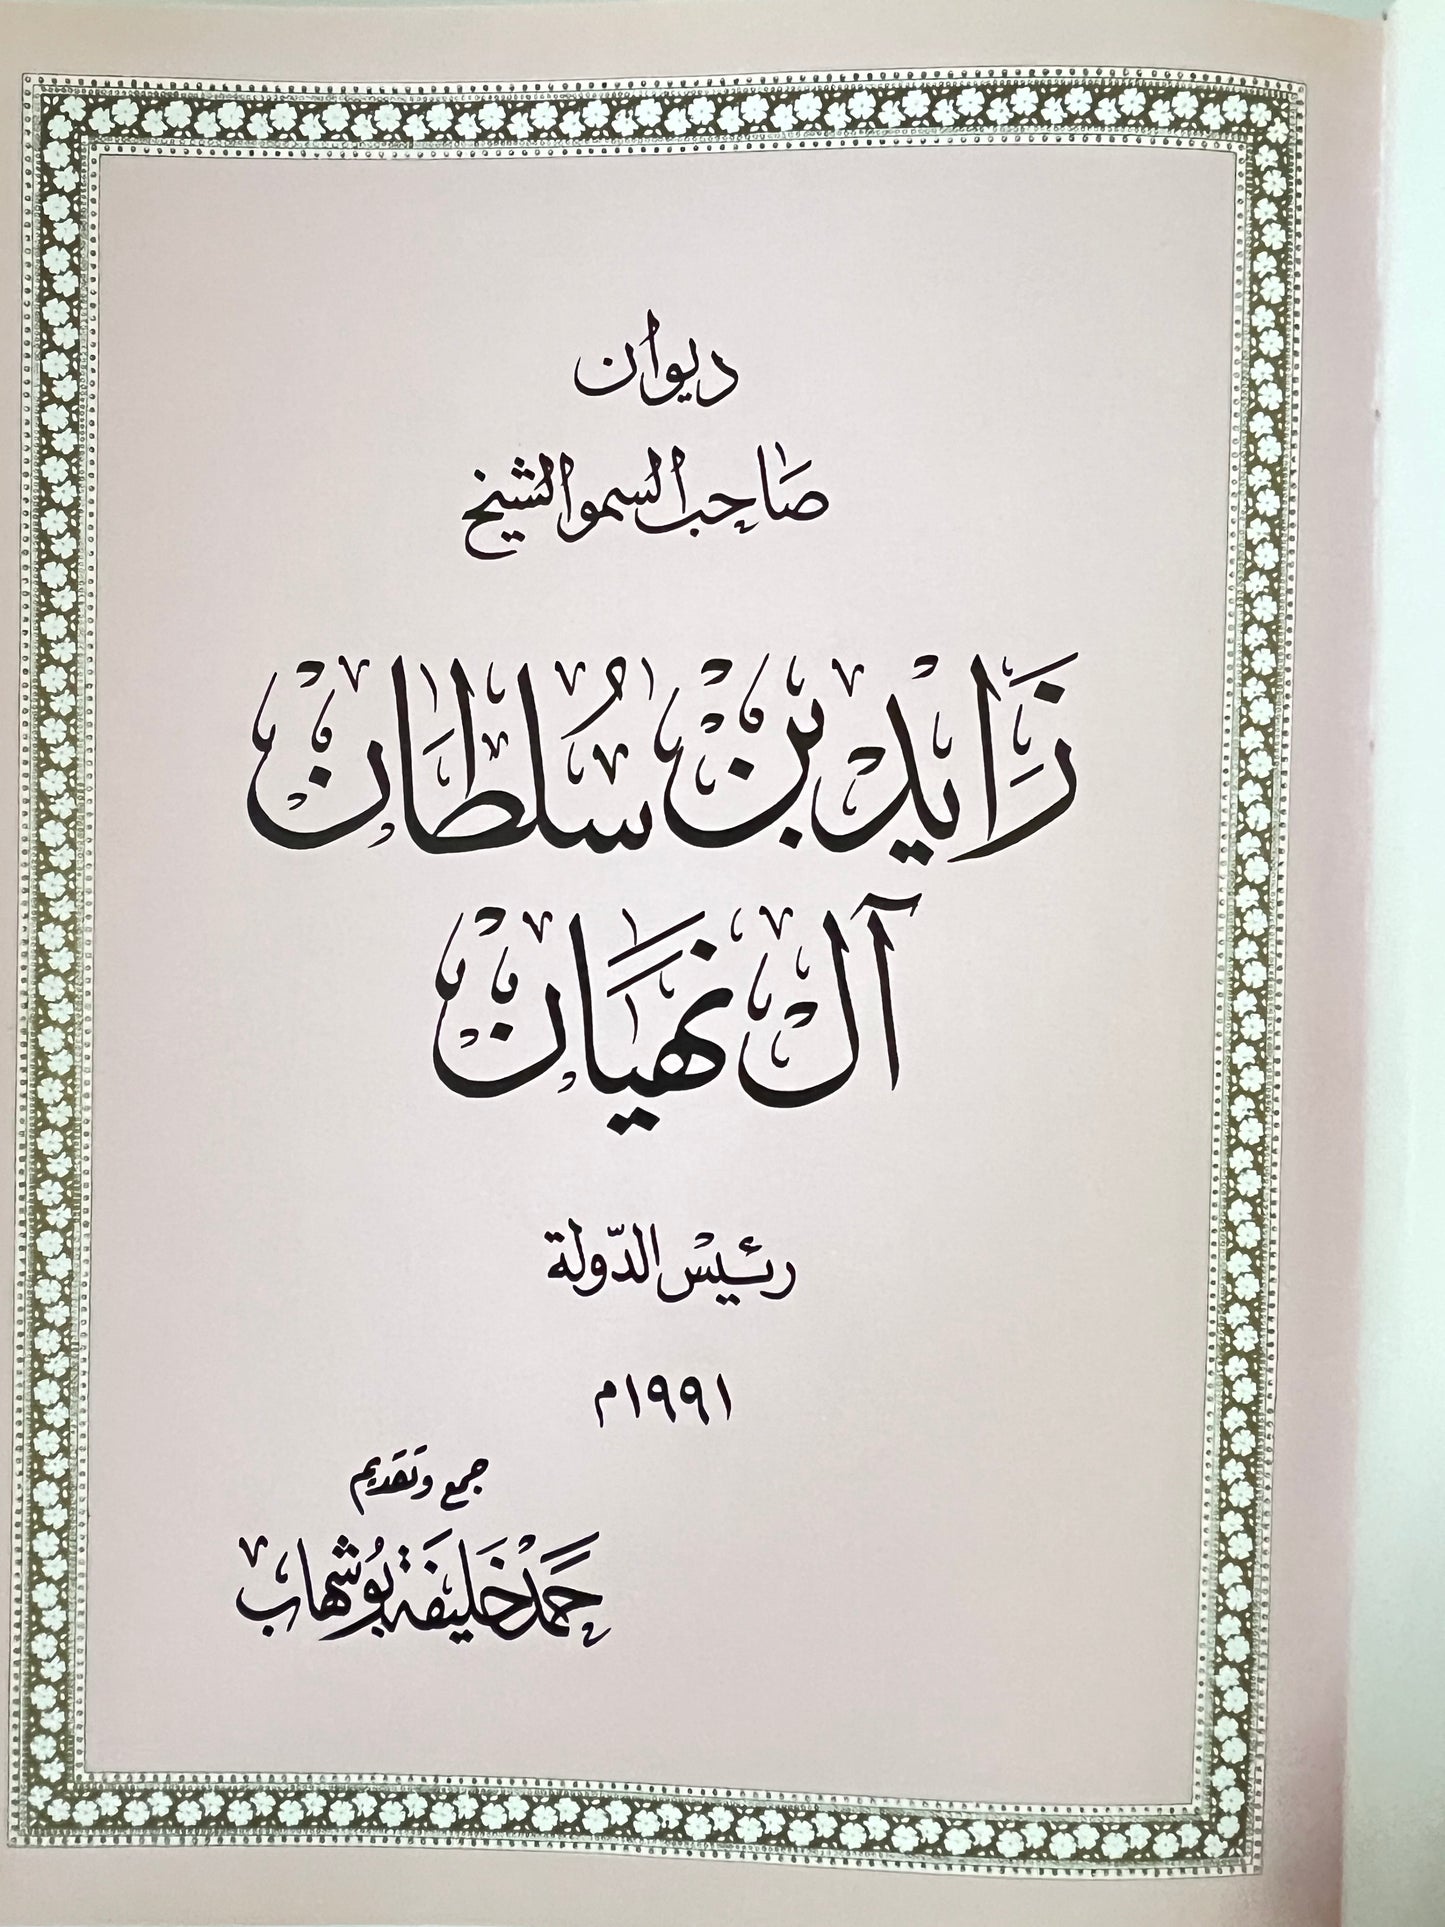 ديوان
صاحب السمو الشيخ
زَايد بن سُلطان
آل نهيان
رئيس الدّولة
١٩٩١م
جمع وتقديم
حمَد خَليفَة بوُشهاب